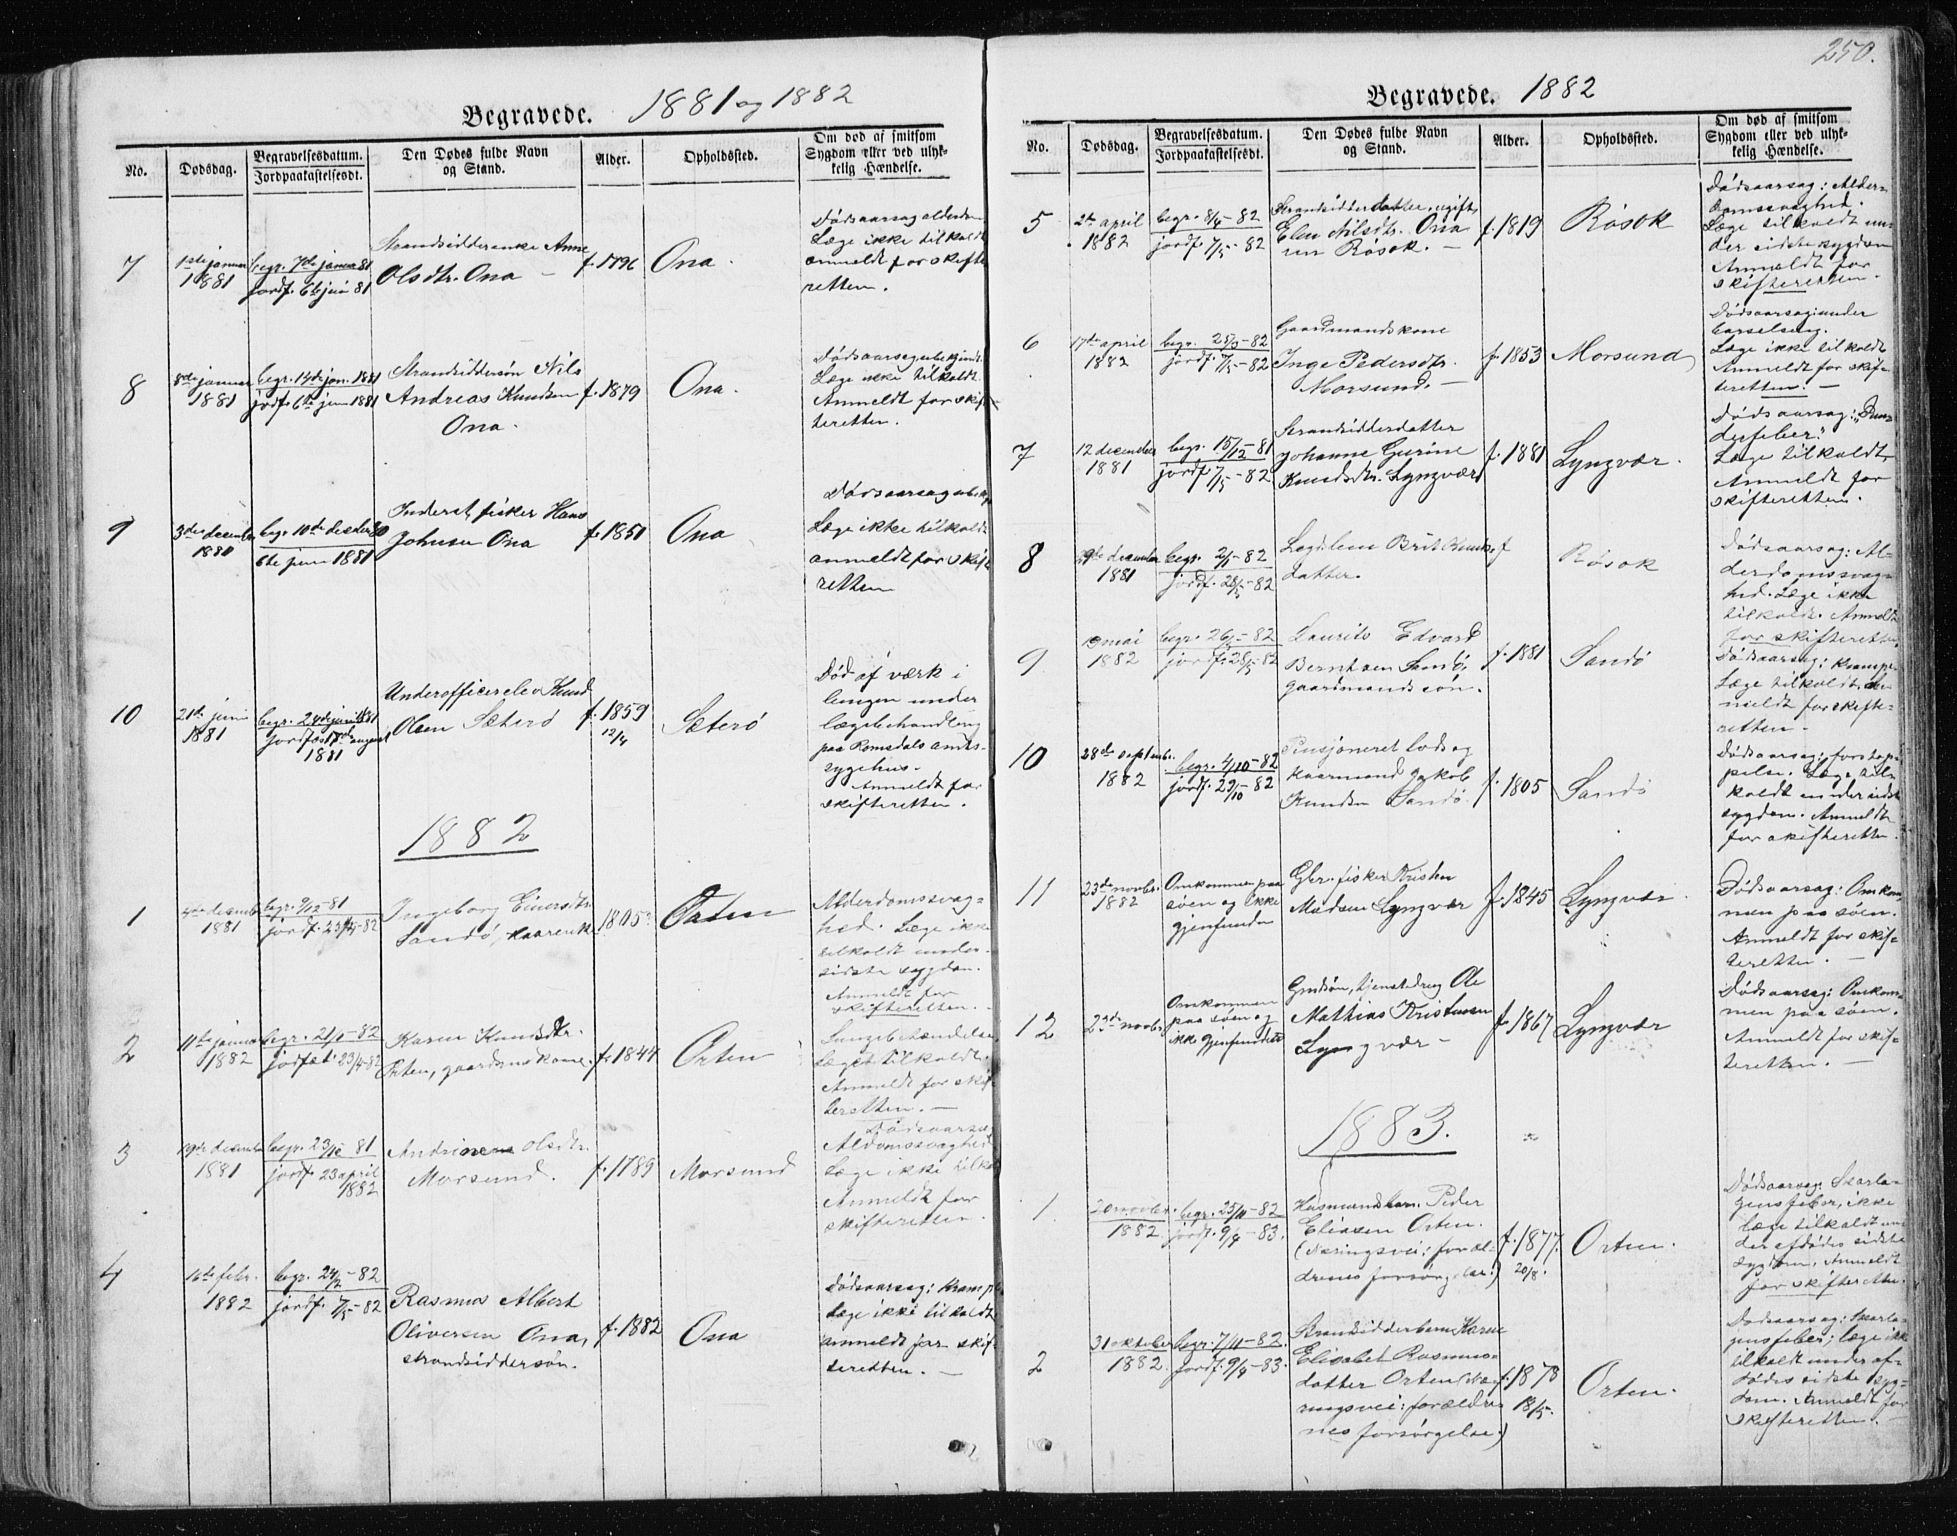 250.
Begravede. 1881 og 1882
No.
Dødsdag.
Begravelsesdatum.
Jordpaakastelsesdt.
Den Dødes fulde Navn
og Stand.
Alder.
Opholdssted.
Om død af smitsom
Sygdom eller ved ulyk-
kelig Hændelse.
7
1ste januar
1881
begr. 7de januar 81
jordf. 6te juni 81
Strandsidderenke Anne
Olsdtr. Ona –
f. 1796
Ona.
Dødsaarsag alderdom
Læge ikke tilkaldt
anmeldt for skifte
retten.
8
8de januar
1881
begr. 14de jan. 1881
jordf. 6te juni 1881
Strandsiddersøn Nils
Andreas Knudsen
Ona.
f. 1879
Ona.
Dødsaarsag ubekjendt.
Læge ikke tilkaldt.
Anmeldt for skif-
teretten.
9
3de december
1880
begr. 10de decbr 80
6te juni 1881
Inderst, fisker Hans
Johnsen Ona
f. 1851
Ona
Dødsaarsag
Læge ikke tilkaldt
anmeldt for skifte
retten
10
21de juni
1881
begr. 28de juni 1881
jordfæst august
1881
Underofficerelev Knud
Olsen Sæterø
f. 1859
12/4
Sæterø
Død af værk i
lungen under
lægebehandling
paa Romsdals amts-
sygehus.
Anmeldt for
skifteretten.
1882
1
4de decemb
1881
begr. 9/12-81
jordf. 23/4-82
Ingeborg Einersdtr.
Sandø, kaarenk.
1805
Orten
Alderdomssvag-
hed. Læge ikke
tilkaldt under
sidste sygdom.
Anmeldt for
skifteretten. –
2
11te januar
1882
begr. 21/1-82
jordfæt. 23/4-82
Karen Knudsdtr.
Orten, gaardmskone.
f. 1844
Orten
Lungebetændelse
Læge tilkaldt.
Anmeldt for skif-
teretten. –
3
19de decemb
1881
begr. 23/12 81
jordf. 23 april
1882
Olsdtr.
Morsund.
f. 1789
Morsund
Dødsaarsag
Aldomssvaghed
Læge ikke tilkal
Anmeldt for
skifteretten.
4
16de febr.
1882
begr. 24/2-82
jordf. 7/5-82
Rasmus Albert
Oliversen Ona,
strandsiddersøn.
f. 1882
Ona
Dødsaarsag: Krampe
Læge ikke tilkaldt
anmeldt for skif-
teretten. –
Begravede. 1882
No.
Dødsdag.
Begravelsesdatum.
Jordpaakastelsesdt.
Den Dødes fulde Navn
og Stand.
Alder.
Opholdssted.
Om død af smitsom
Sygdom eller ved ulyk-
kelig Hændelse.
5
2de april
1882
begr. 8/4-82
jordf. 7/5-82
Strandsidderdatter, ugift,
Elen Nilsdtr. Ona
Røsok. –
f. 1819
Røsok
Dødsaarsag: Alder-
domssvaghed.
Læge tilkaldt un-
der sidste sygdom
Anmeldt for
skifteretten.
6
17de april
1882
begr. 28/3-82
jordf. 7/5-82
Gaardmandskone
Inge Pedersdtr.
Morsund. –
f. 1853
Morsund
Dødsaarsag: under
barselseng.
Læge ikke tilkaldt
Anmeldt for skif-
teretten. –
7
12 december
1881
begr. 15/12-81
jordf. 7/5-82
Strandsidderdatter
Johanne Gurine
Knudsdtr. Lyngvær
f. 1881
Lyngvær.
Dødsaarsag:
Læge tilkaldt,
Anmeldt for
skifteretten.
8
december
1881
begr. 2/1-82
jordf. 28/5-82
Læglem Brit Knuds
datter.
f
Røsok
Dødsaarsag: Al-
derdomssvag-
hed. Læge ikke
tilkaldt. Anmeldt
for skifteretten.
9
mai
1882
begr. 26/5-82
jordf. 28/5-82
Laurits Edvard
Berntsen Sandø,
gaardmandssøn.
f. 1881
Sandø
Dødsaarsag: krampe
Læge tilkaldt. An-
meldt for skifte-
retten. –
10
28de septemb.
1882
begr. 4/10-82
jordf. 29/10-82
Pensjoneret lods og
kaarmand Jakob
Knudsen Sandø.
f. 1805
Sandø
Dødsaarsag: forstop-
pelse. Læge til-
kaldt under sidste
sygdom. Anmeldt
for skifteretten.
11
23de novbr.
1882
Omkommen paa
søen og ikke
gjenfunden
Gbr. fisker Kristen
Madsen Lyngvær
f. 1845
Lyngvær
Dødsaarsag: Omkom-
men paa søen.
Anmeldt for skif-
teretten. –
12
23de novbr.
Omkommen
paa søen og
ikke gjenfundet
Gmdsøn, tjenstedreng Ole
Mathias Kristensen
Lyngvær –
f. 1867
Lyngvær
Dødsaarsag: Omkom-
men paa søen.
Anmeldt for skif-
teretten. –
1883.
1
20 novbr.
1882.
begr. 25/11-82
jordf. 9/4-83.
Husmandsbarn Peder
Eliasen Orten.
(Næringsvei: foræl-
drenes forsørgelse.)
f. 1877.
20/8.
Orten.
Dødsaarsag: Skarla-
gensfeber, ikke
læge tilkaldt un-
der afdødes sidste
sygdom. Anmeldt
for skifteretten.
2
31 oktober
1882.
begr. 7/11-82.
jordf. 9/4-83.
Strandsidderbarn Karen
Elisabet Rasmus-
datter Orten (næ-
ringsvei: forældre
nes forsørgelse.)
f. 1878
18/5.
Orten.
Dødsaarsag: Skarla-
gensfeber; læge ikke
tilkaldt under af-
dødes sidste syg-
dom. Anmeldt for
skifteretten. –